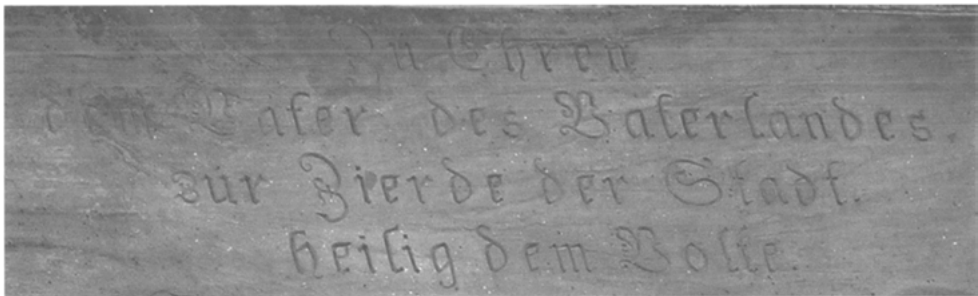 Zu Ehren
dem Vater des Vaterlandes.
zur Zierde der Stadt.
heilig dem Volke.